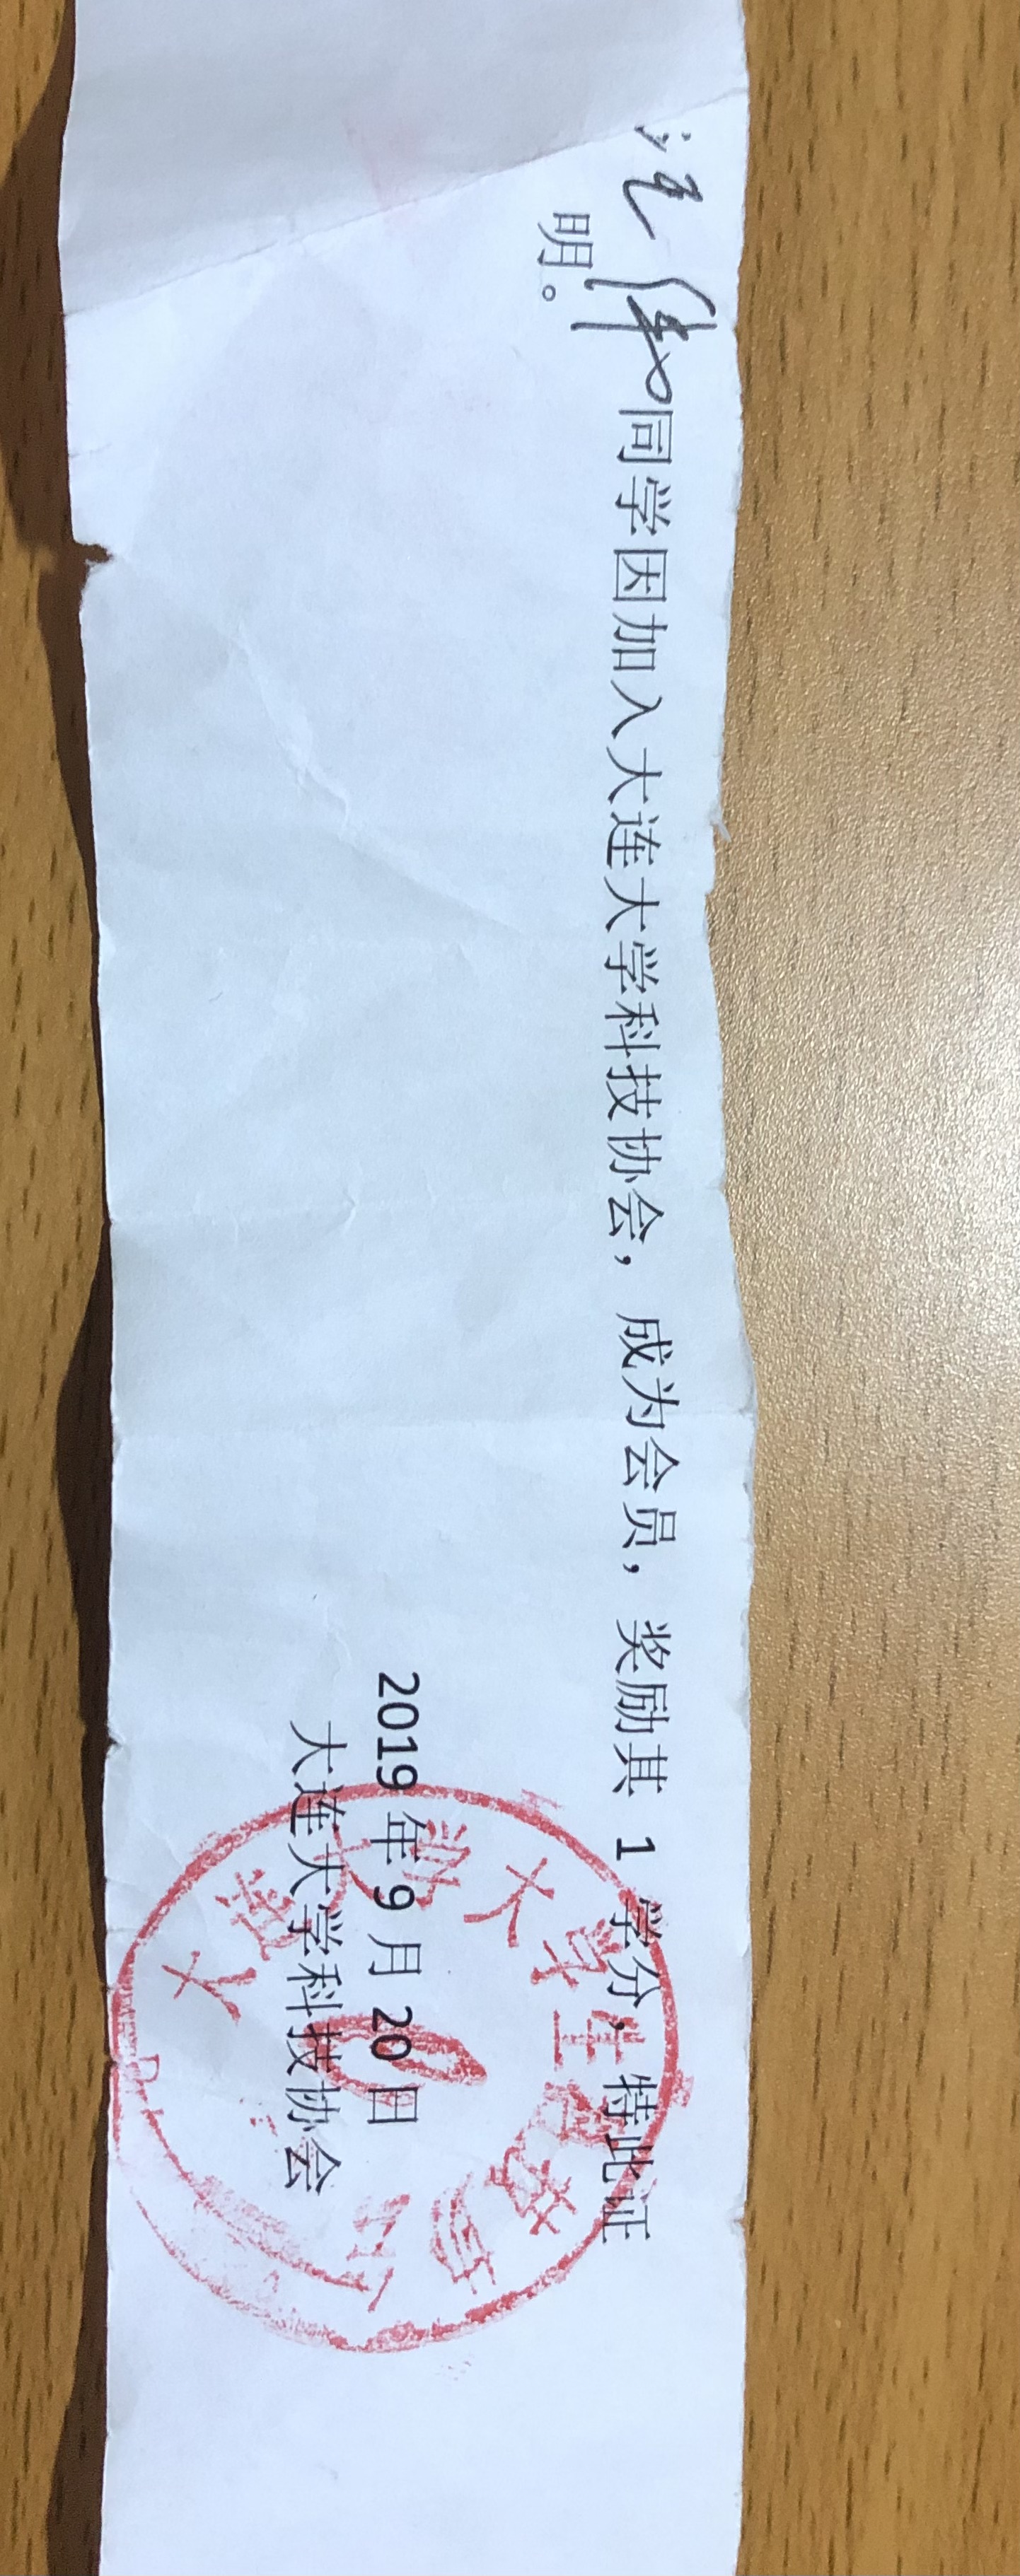 汪伟同学因加入大连大学科技协会，成为会员，奖励其 1 学分，特此证
明。
2019 年 9 月 20 日
大连大学科技协会
大连大学大学生科技协会